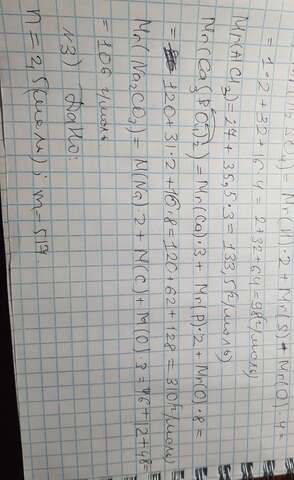 M(H₂SO₄) = Mr(H)·2 + Mr(S) + Mr(O)·4 =
= 1·2 + 32 + 16·4 = 2+32+64 = 98 (г/моль)
Mr(AlCl₃) = 27 + 35,5·3 = 133,5 (г/моль)
Mr(Ca₃(PO₄)₂) = Mr(Ca)·3 + Mr(P)·2 + Mr(O)·8 =
= 120 + 31·2 + 16·8 = 120 + 62 + 128 = 310 (г/моль)
Mr(Na₂CO₃) = M(Na)·2 + M(C) + M(O)·3 = 46 + 12 + 48 =
= 106 г/моль
№3) Дано:
n = 2,5 (моль); m = 517.